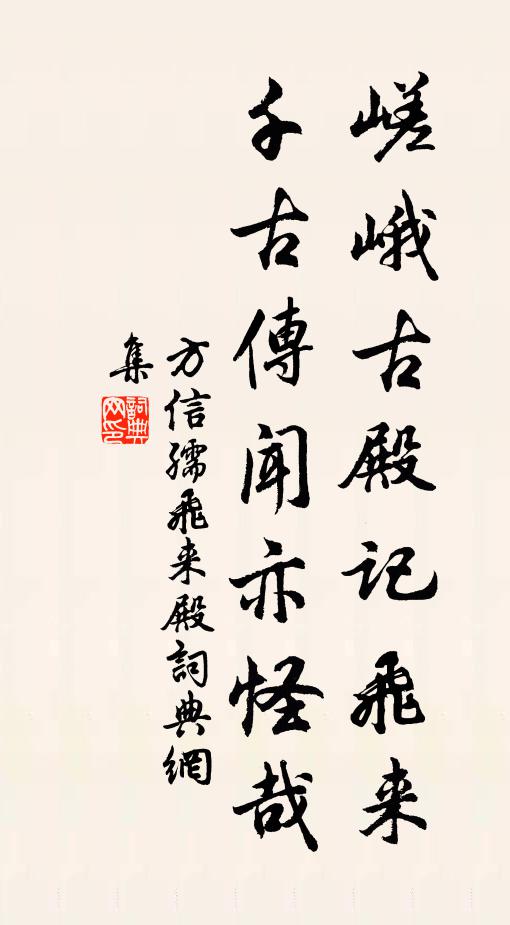 嵯峨古殿記飛来
千古傳聞亦怪哉
方信孺飛来殿詞典網
集
詞典網印